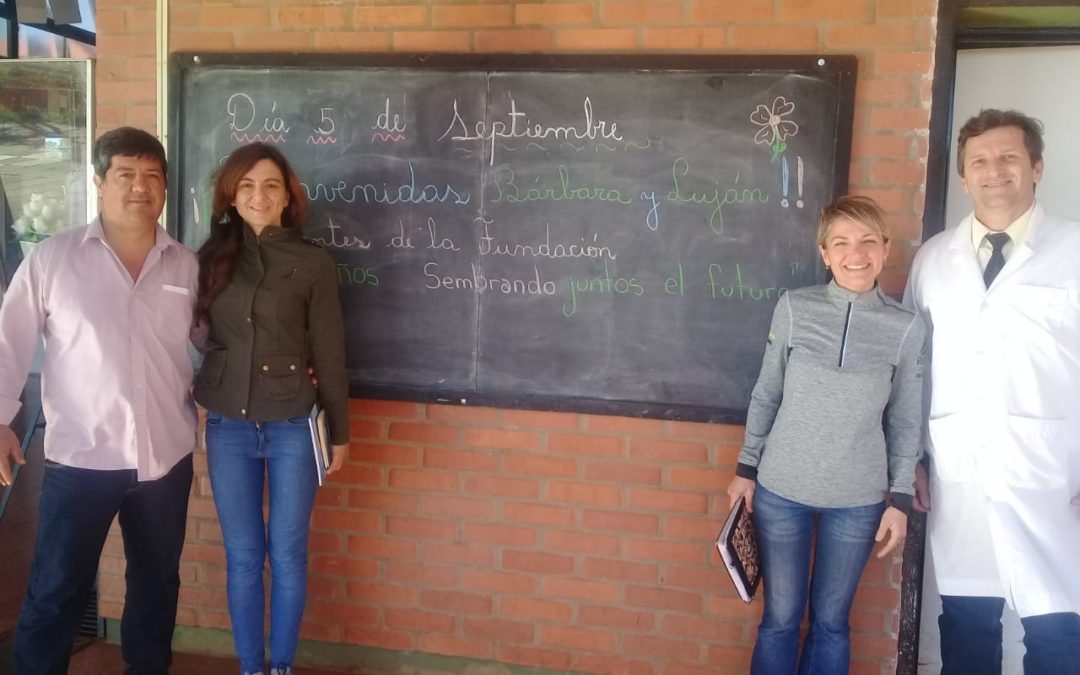 Día 5 de Septiembre.
venidas Bárbara y Luján !!
ntes de la Fundación
ños Sembrando juntos el futuro"